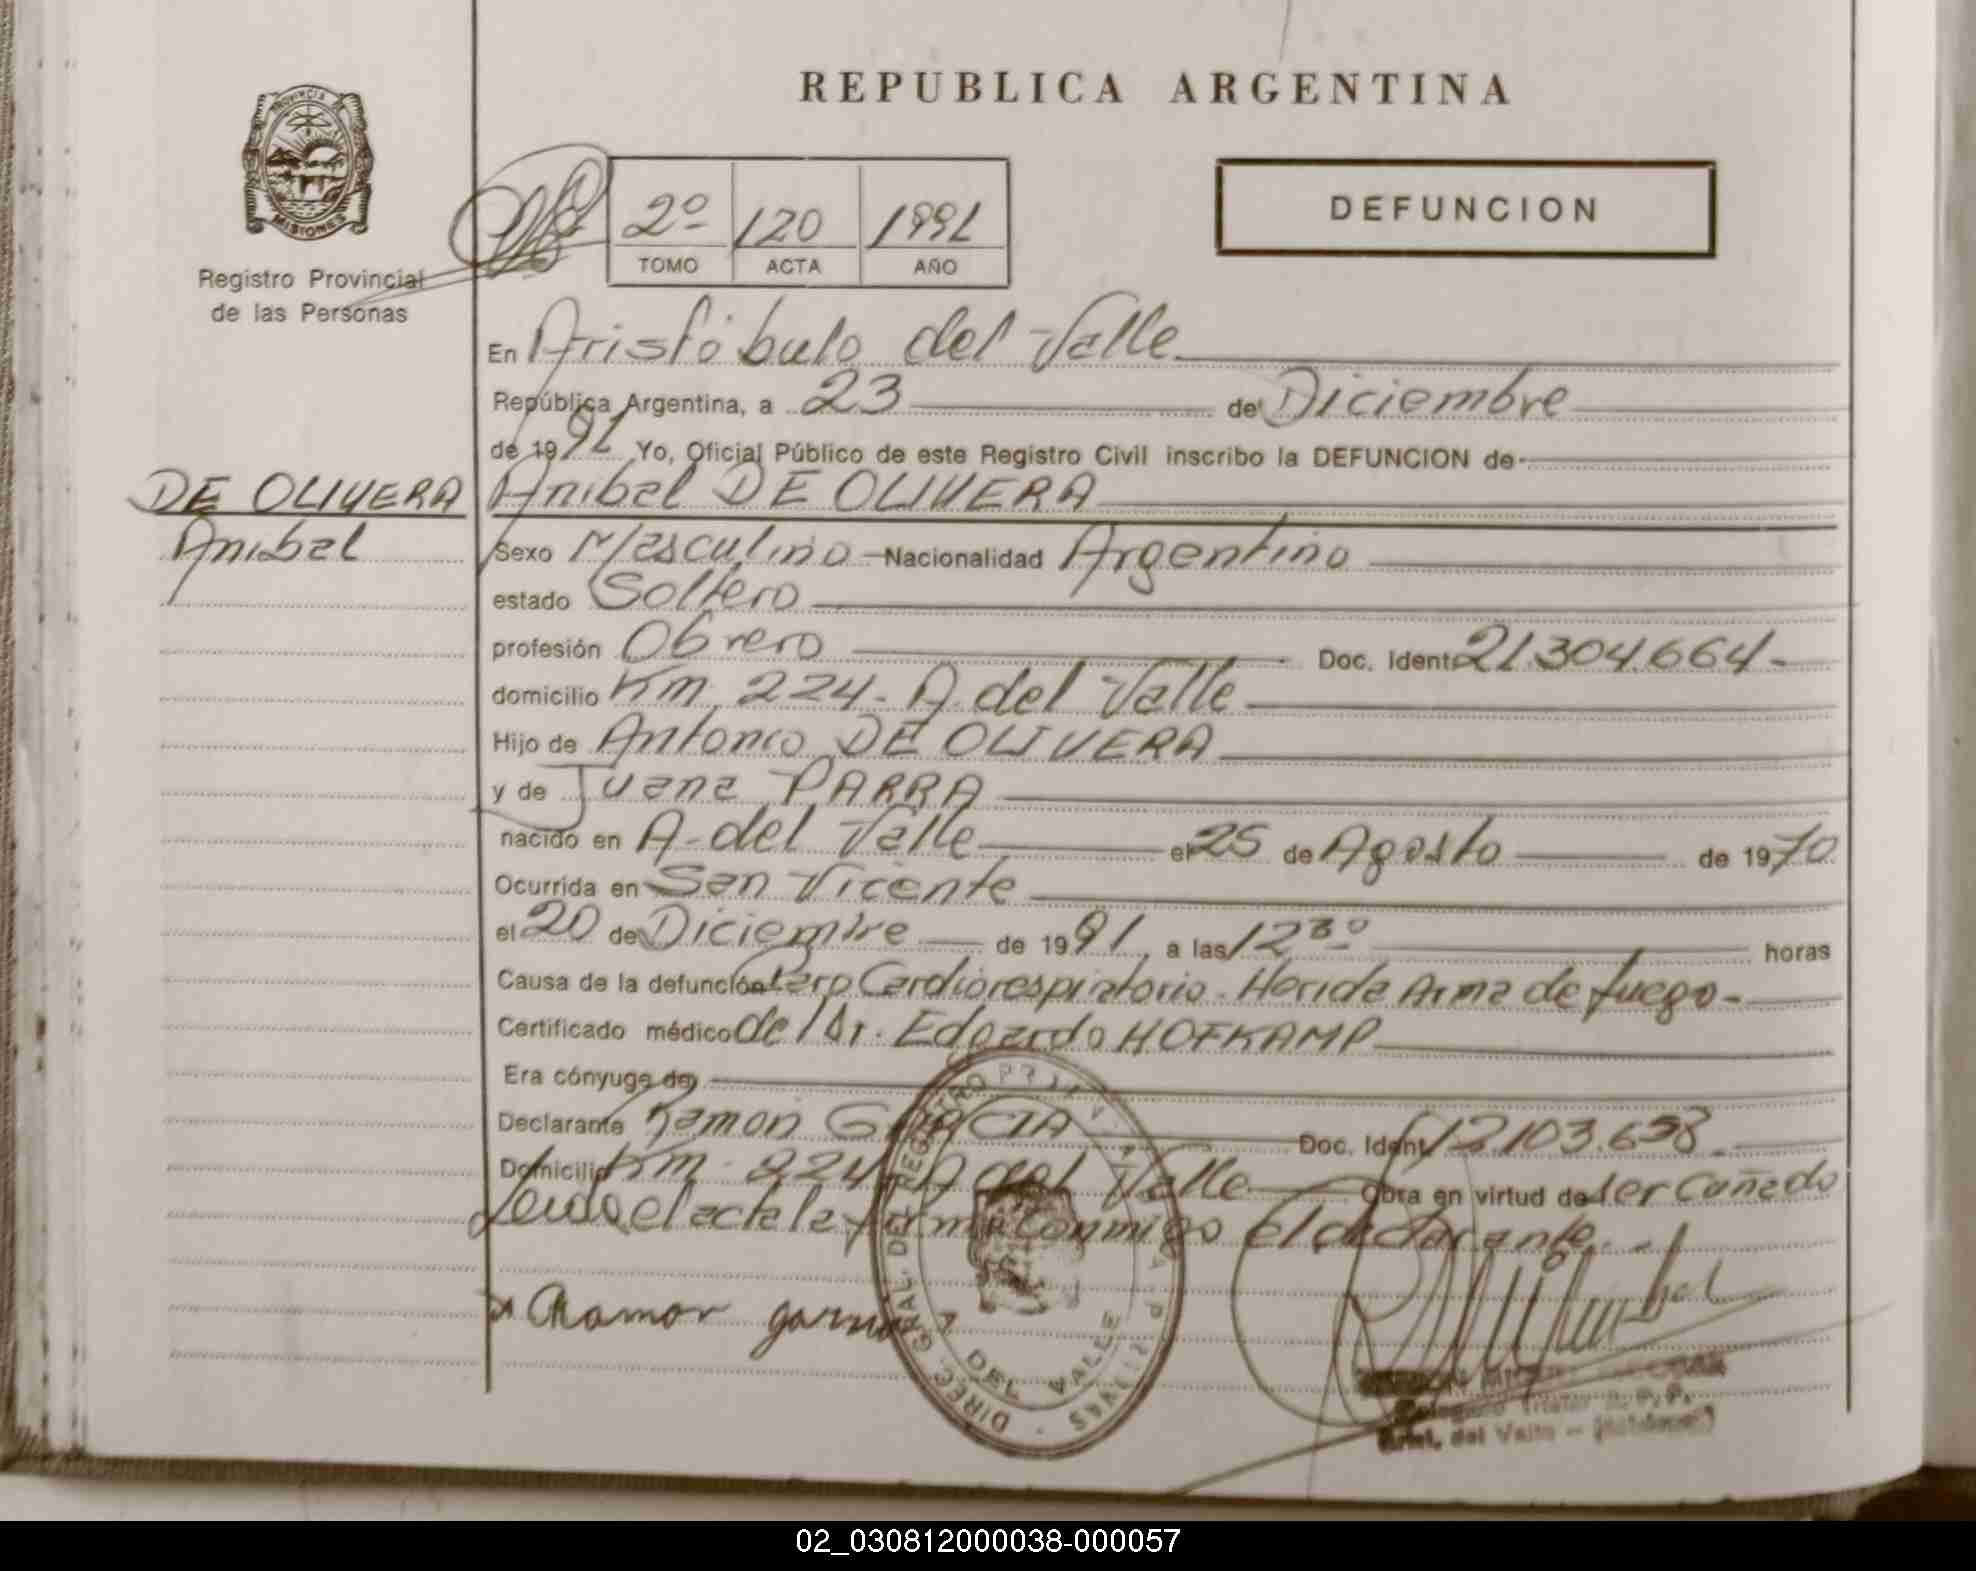 REPUBLICA ARGENTINA
PROVINCIA
MISIONES
Registro Provincial
de las Personas
2º 120 1991
TOMO ACTA AÑO
DEFUNCION
En Aristóbulo del Valle
República Argentina, a 23 de Diciembre
de 1991 Yo, Oficial Público de este Registro Civil inscribo la DEFUNCION de
DE OLIVERA
Anibal
Anibal DE OLIVERA
Sexo Masculino Nacionalidad Argentino
estado Soltero
profesión Obrero Doc. Ident. 21.304.664-
domicilio Km. 224- A. del Valle
Hijo de Antonio DE OLIVERA
y de Juana PARRA
nacido en A. del Valle el 25 de Agosto de 1970
Ocurrida en San Vicente
el 20 de Diciembre de 1991, a las 12 30 horas
Causa de la defunción Paro Cardiorespiratorio. Herida Arma de fuego-
Certificado médico del Dr. Edgardo HOFKAMP
Era cónyuge de
Declarante Ramon GARCIA Doc. Ident. 12.103.638
Domicilio Km. 224 A del Valle Obra en virtud de ser Cuñado
Leída el acta la firma conmigo el declarante.-
x Ramon garcia
DIREC. GRAL. DEL REGISTRO PROV. DEL VALLE
Arist. del Valle -
02_030812000038-000057